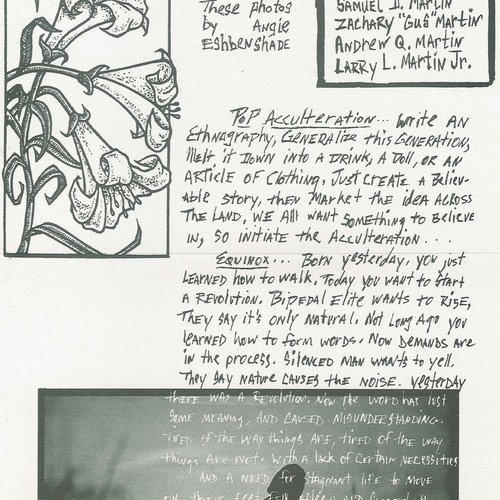 These photos
by Angie
Eshbenshade
Samuel J. Martin
Zachary "Gus" Martin
Andrew Q. Martin
Larry L. Martin Jr.
PoP Acculteration... Write an
Ethnagraphy, Generalize this Generation,
Melt it down into a drink, a doll, or an
article of clothing. Just create a believ-
able story, then market the idea across
the land, we all want something to believe
in, so initiate the Acculteration...
Equinox... Born yesterday, you just
learned how to walk. Today you want to start
a revolution. Bipedal Elite wants to rise,
they say it's only natural. Not long ago you
learned how to form words. Now demands are
in the process. Silenced man wants to yell.
They say nature causes the noise. Yesterday
there was a revolution. Now the word has lost
some meaning, and caused misunderstanding.
Tired of the way things are, tired of the way
things are not. With a lack of certain necessities
and a need for stagnant life to move
on these feet